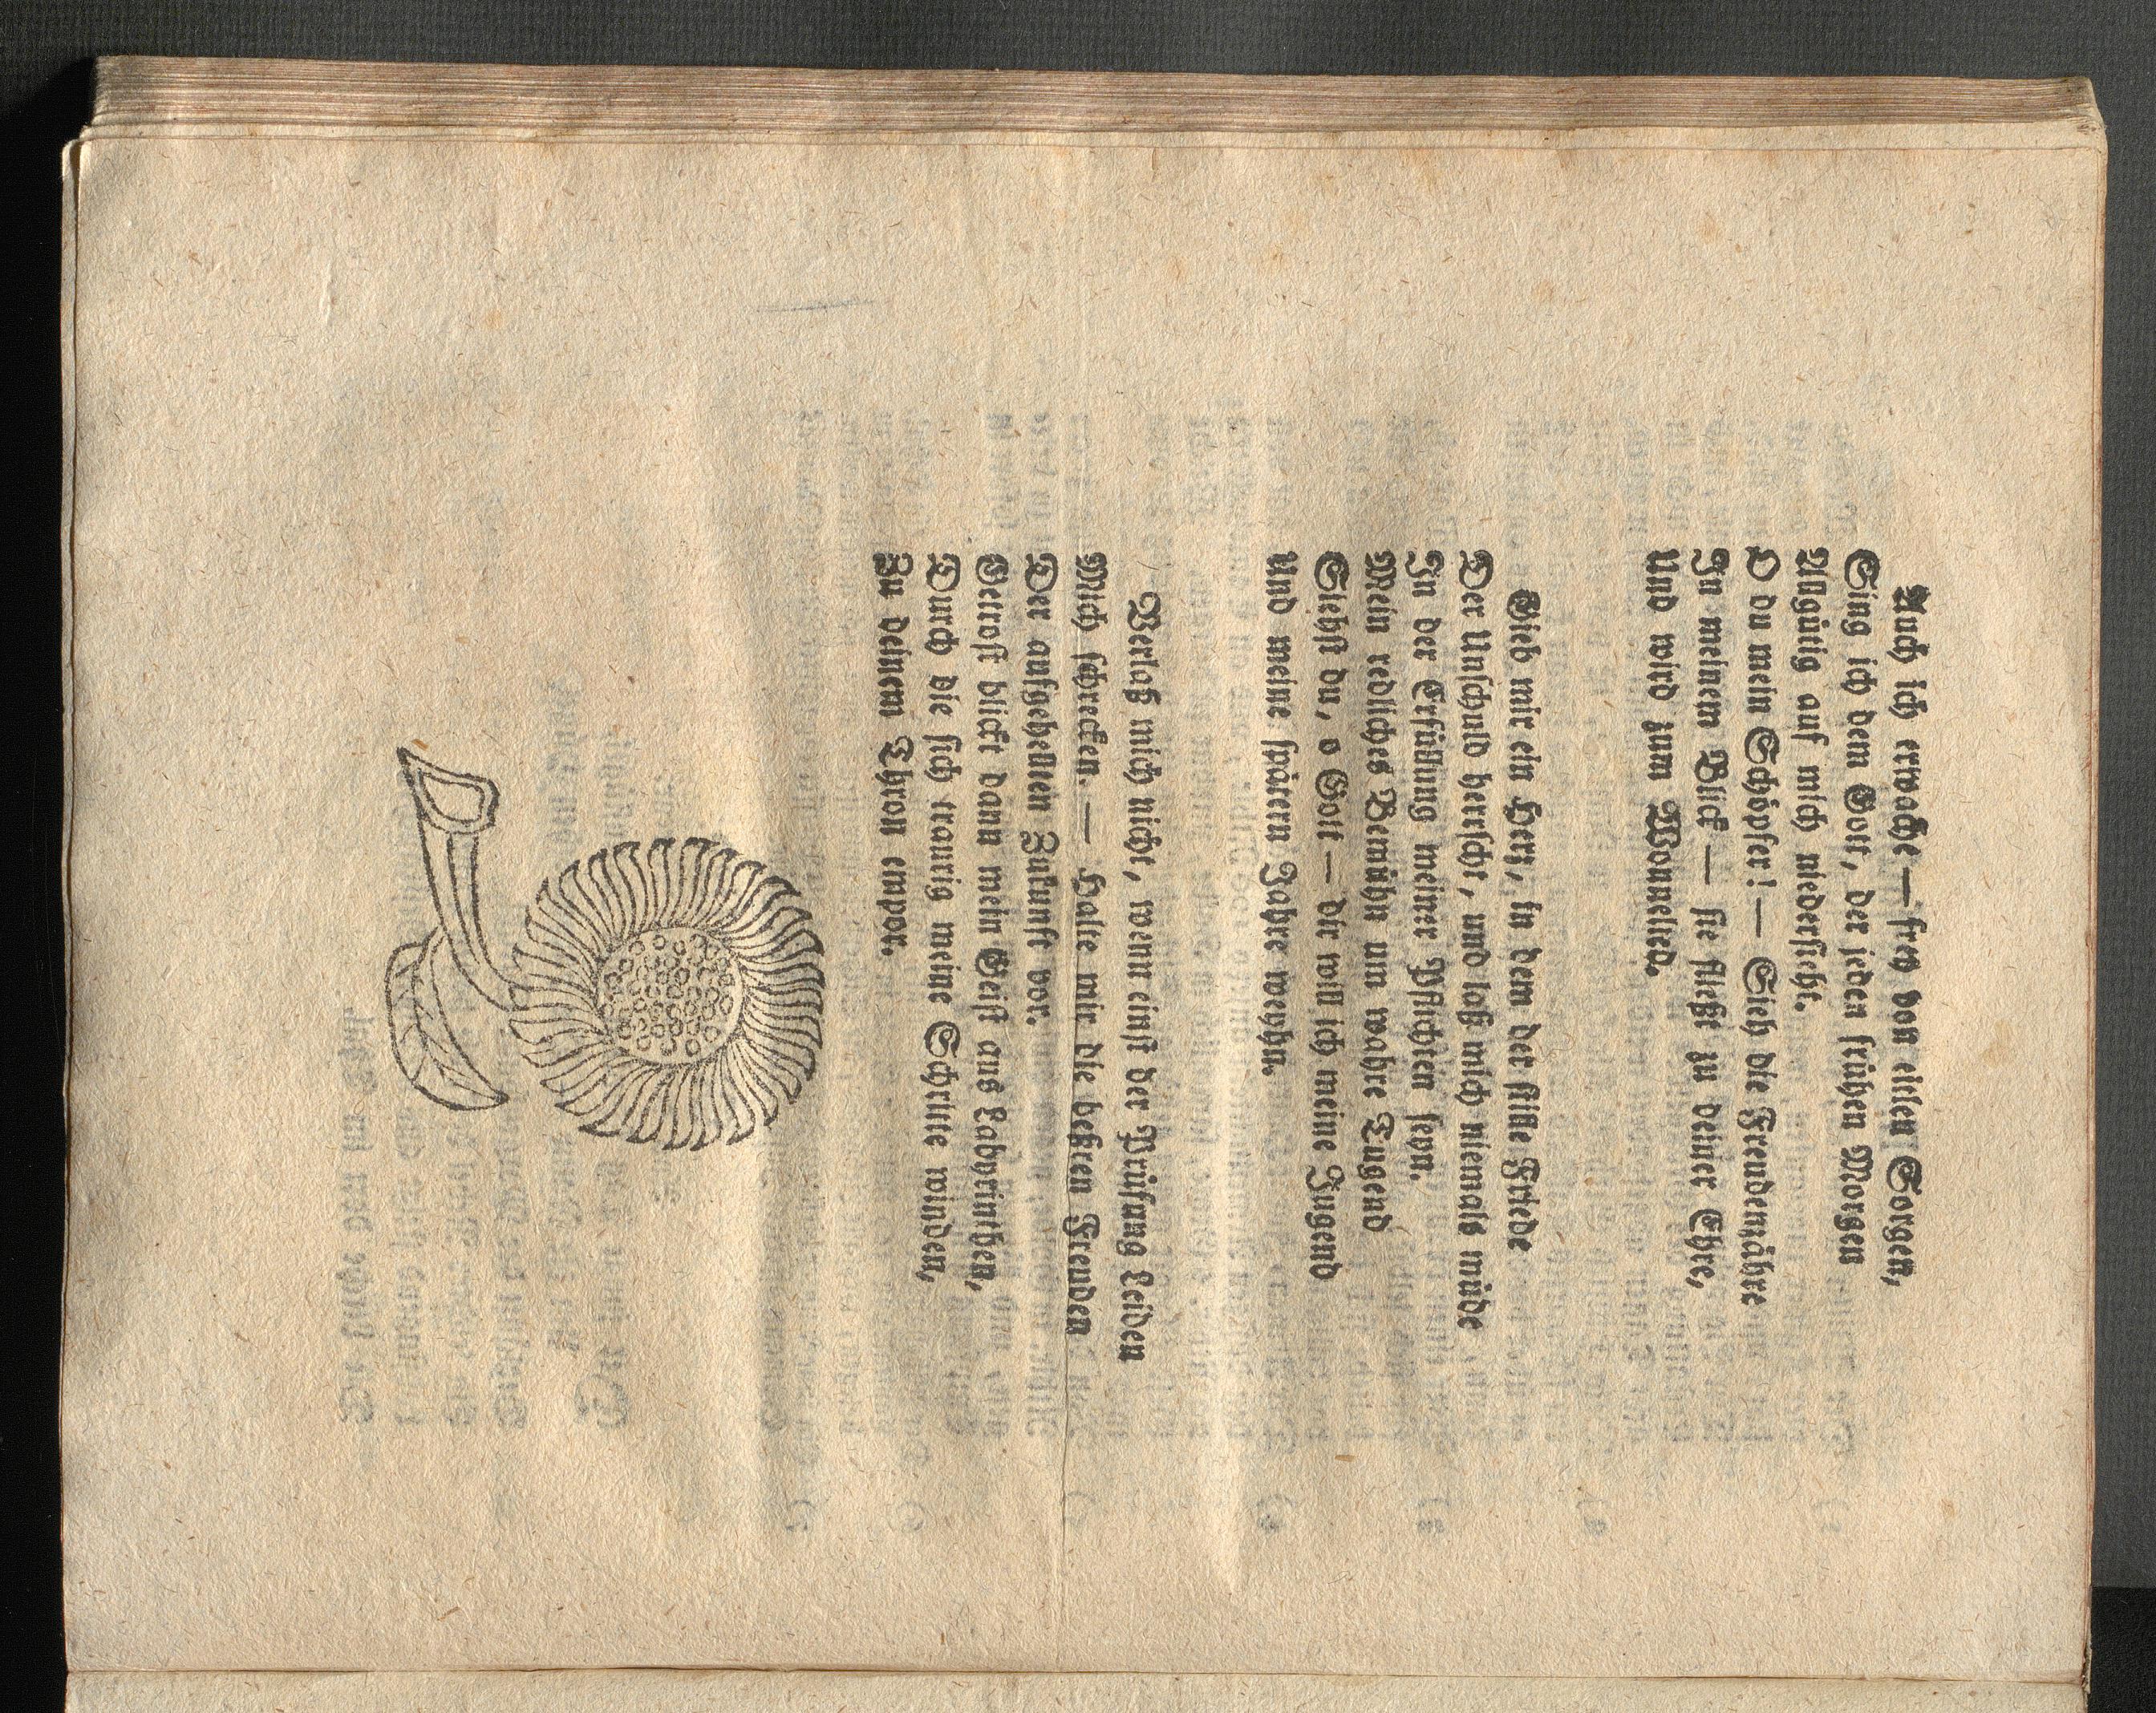 Auch ich erwache — frey von eitlen Sorgen,
Sing ich dem Gott, der jeden frühen Morgen
Allgütig auf mich niedersieht.
O du mein Schöpfer! — Sieh die Freudenzähre
In meinem Blick — sie fließt zu deiner Ehre,
Und wird zum Wonnelied.
Gieb mir ein Herz, in dem der stille Friede
Der Unschuld herrscht, und laß mich niemals müde
In der Erfüllung meiner Pflichten seyn.
Mein redliches Bemühn um wahre Tugend
Siehst du, o Gott — dir will ich meine Jugend
Und meine spätern Jahre weyhn.
Verlaß mich nicht, wenn einst der Prüfung Leiden
Mich schrecken. — Halte mir die beßren Freuden
Der aufgehellten Zukunft vor.
Getrost blickt dann mein Geist aus Labyrinthen,
Durch die sich traurig meine Schritte winden,
Zu deinem Thron empor.